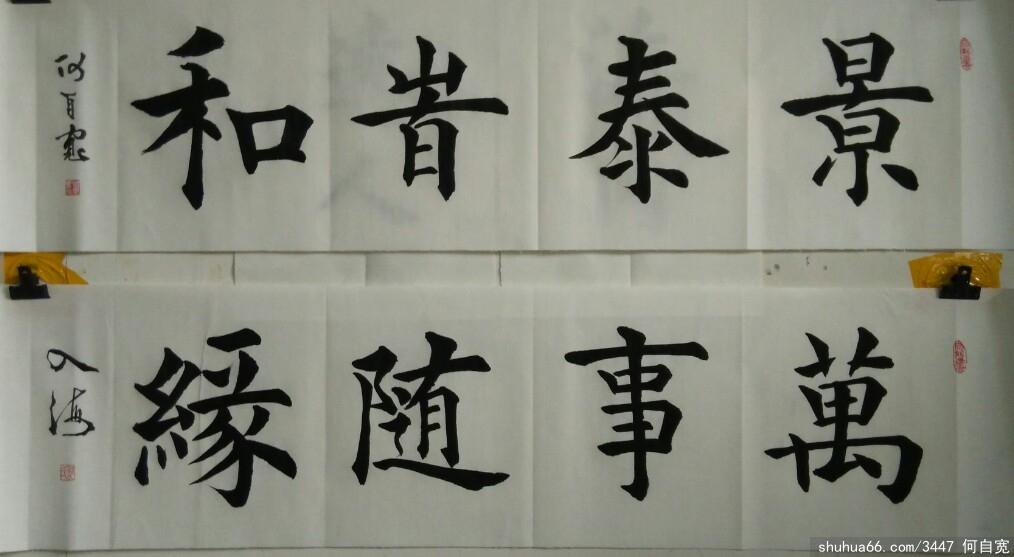 景泰旹和
何自寬
萬事随緣
入海
shuhua66.com/3447 何自宽